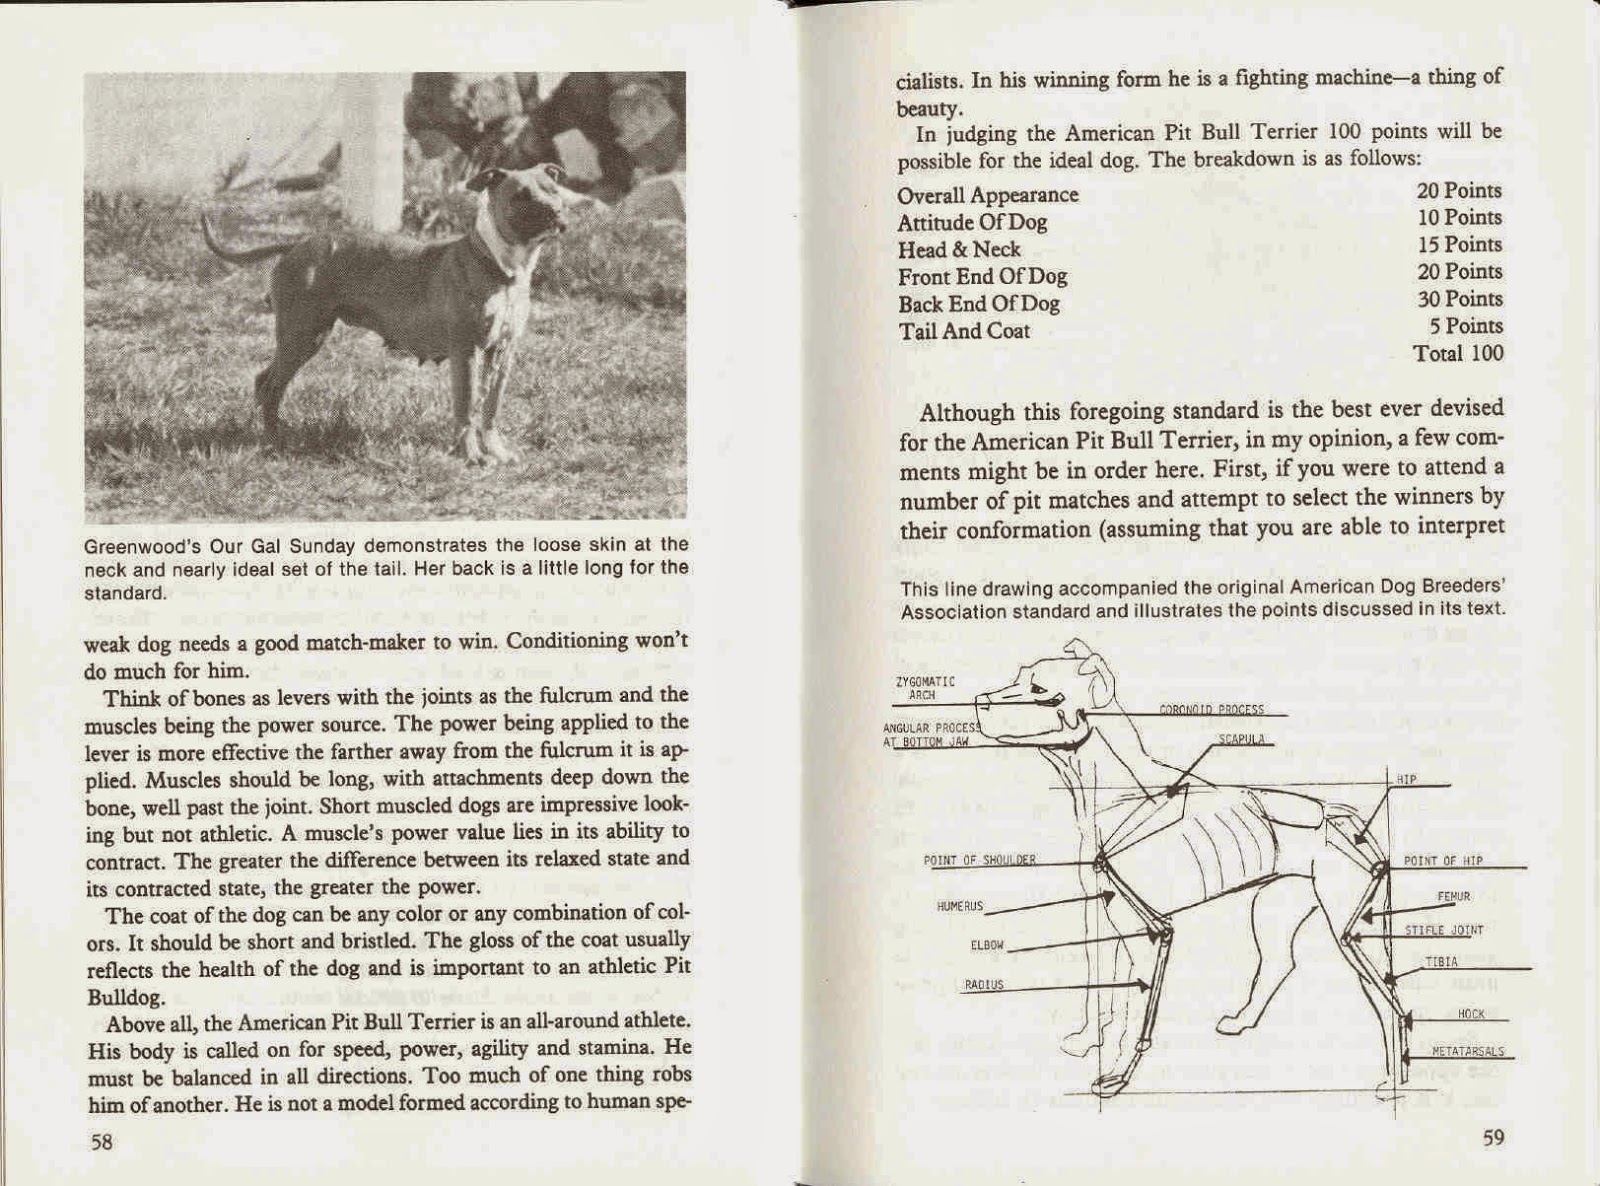 Greenwood's Our Gal Sunday demonstrates the loose skin at the
neck and nearly ideal set of the tail. Her back is a little long for the
standard.
weak dog needs a good match-maker to win. Conditioning won't
do much for him.
Think of bones as levers with the joints as the fulcrum and the
muscles being the power source. The power being applied to the
lever is more effective the farther away from the fulcrum it is ap-
plied. Muscles should be long, with attachments deep down the
bone, well past the joint. Short muscled dogs are impressive look-
ing but not athletic. A muscle's power value lies in its ability to
contract. The greater the difference between its relaxed state and
its contracted state, the greater the power.
The coat of the dog can be any color or any combination of col-
ors. It should be short and bristled. The gloss of the coat usually
reflects the health of the dog and is important to an athletic Pit
Bulldog.
Above all, the American Pit Bull Terrier is an all-around athlete.
His body is called on for speed, power, agility and stamina. He
must be balanced in all directions. Too much of one thing robs
him of another. He is not a model formed according to human spe-
58
cialists. In his winning form he is a fighting machine—a thing of
beauty.
In judging the American Pit Bull Terrier 100 points will be
possible for the ideal dog. The breakdown is as follows:
Overall Appearance 20 Points
Attitude Of Dog 10 Points
Head & Neck 15 Points
Front End Of Dog 20 Points
Back End Of Dog 30 Points
Tail And Coat 5 Points
Total 100
Although this foregoing standard is the best ever devised
for the American Pit Bull Terrier, in my opinion, a few com-
ments might be in order here. First, if you were to attend a
number of pit matches and attempt to select the winners by
their conformation (assuming that you are able to interpret
This line drawing accompanied the original American Dog Breeders'
Association standard and illustrates the points discussed in its text.
ZYGOMATIC
ARCH
CORONOID PROCESS
ANGULAR PROCESS
AT BOTTOM JAW
SCAPULA
HIP
POINT OF SHOULDER
POINT OF HIP
HUMERUS
FEMUR
ELBOW
STIFLE JOINT
TIBIA
RADIUS
HOCK
METATARSALS
59